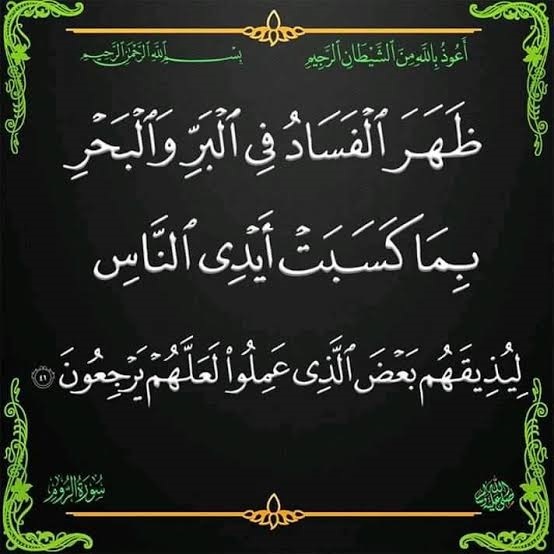 أَعُوذُ بِاللَّهِ مِنَ الشَّيْطَانِ الرَّجِيمِ بِسْمِ اللَّهِ الرَّحْمَٰنِ الرَّحِيمِ
ظَهَرَ ٱلْفَسَادُ فِى ٱلْبَرِّ وَٱلْبَحْرِ
بِمَا كَسَبَتْ أَيْدِى ٱلنَّاسِ
لِيُذِيقَهُم بَعْضَ ٱلَّذِى عَمِلُوا۟ لَعَلَّهُمْ يَرْجِعُونَ ٤١
صلى الله عليه وسلم سُورَةُ الرُّومِ